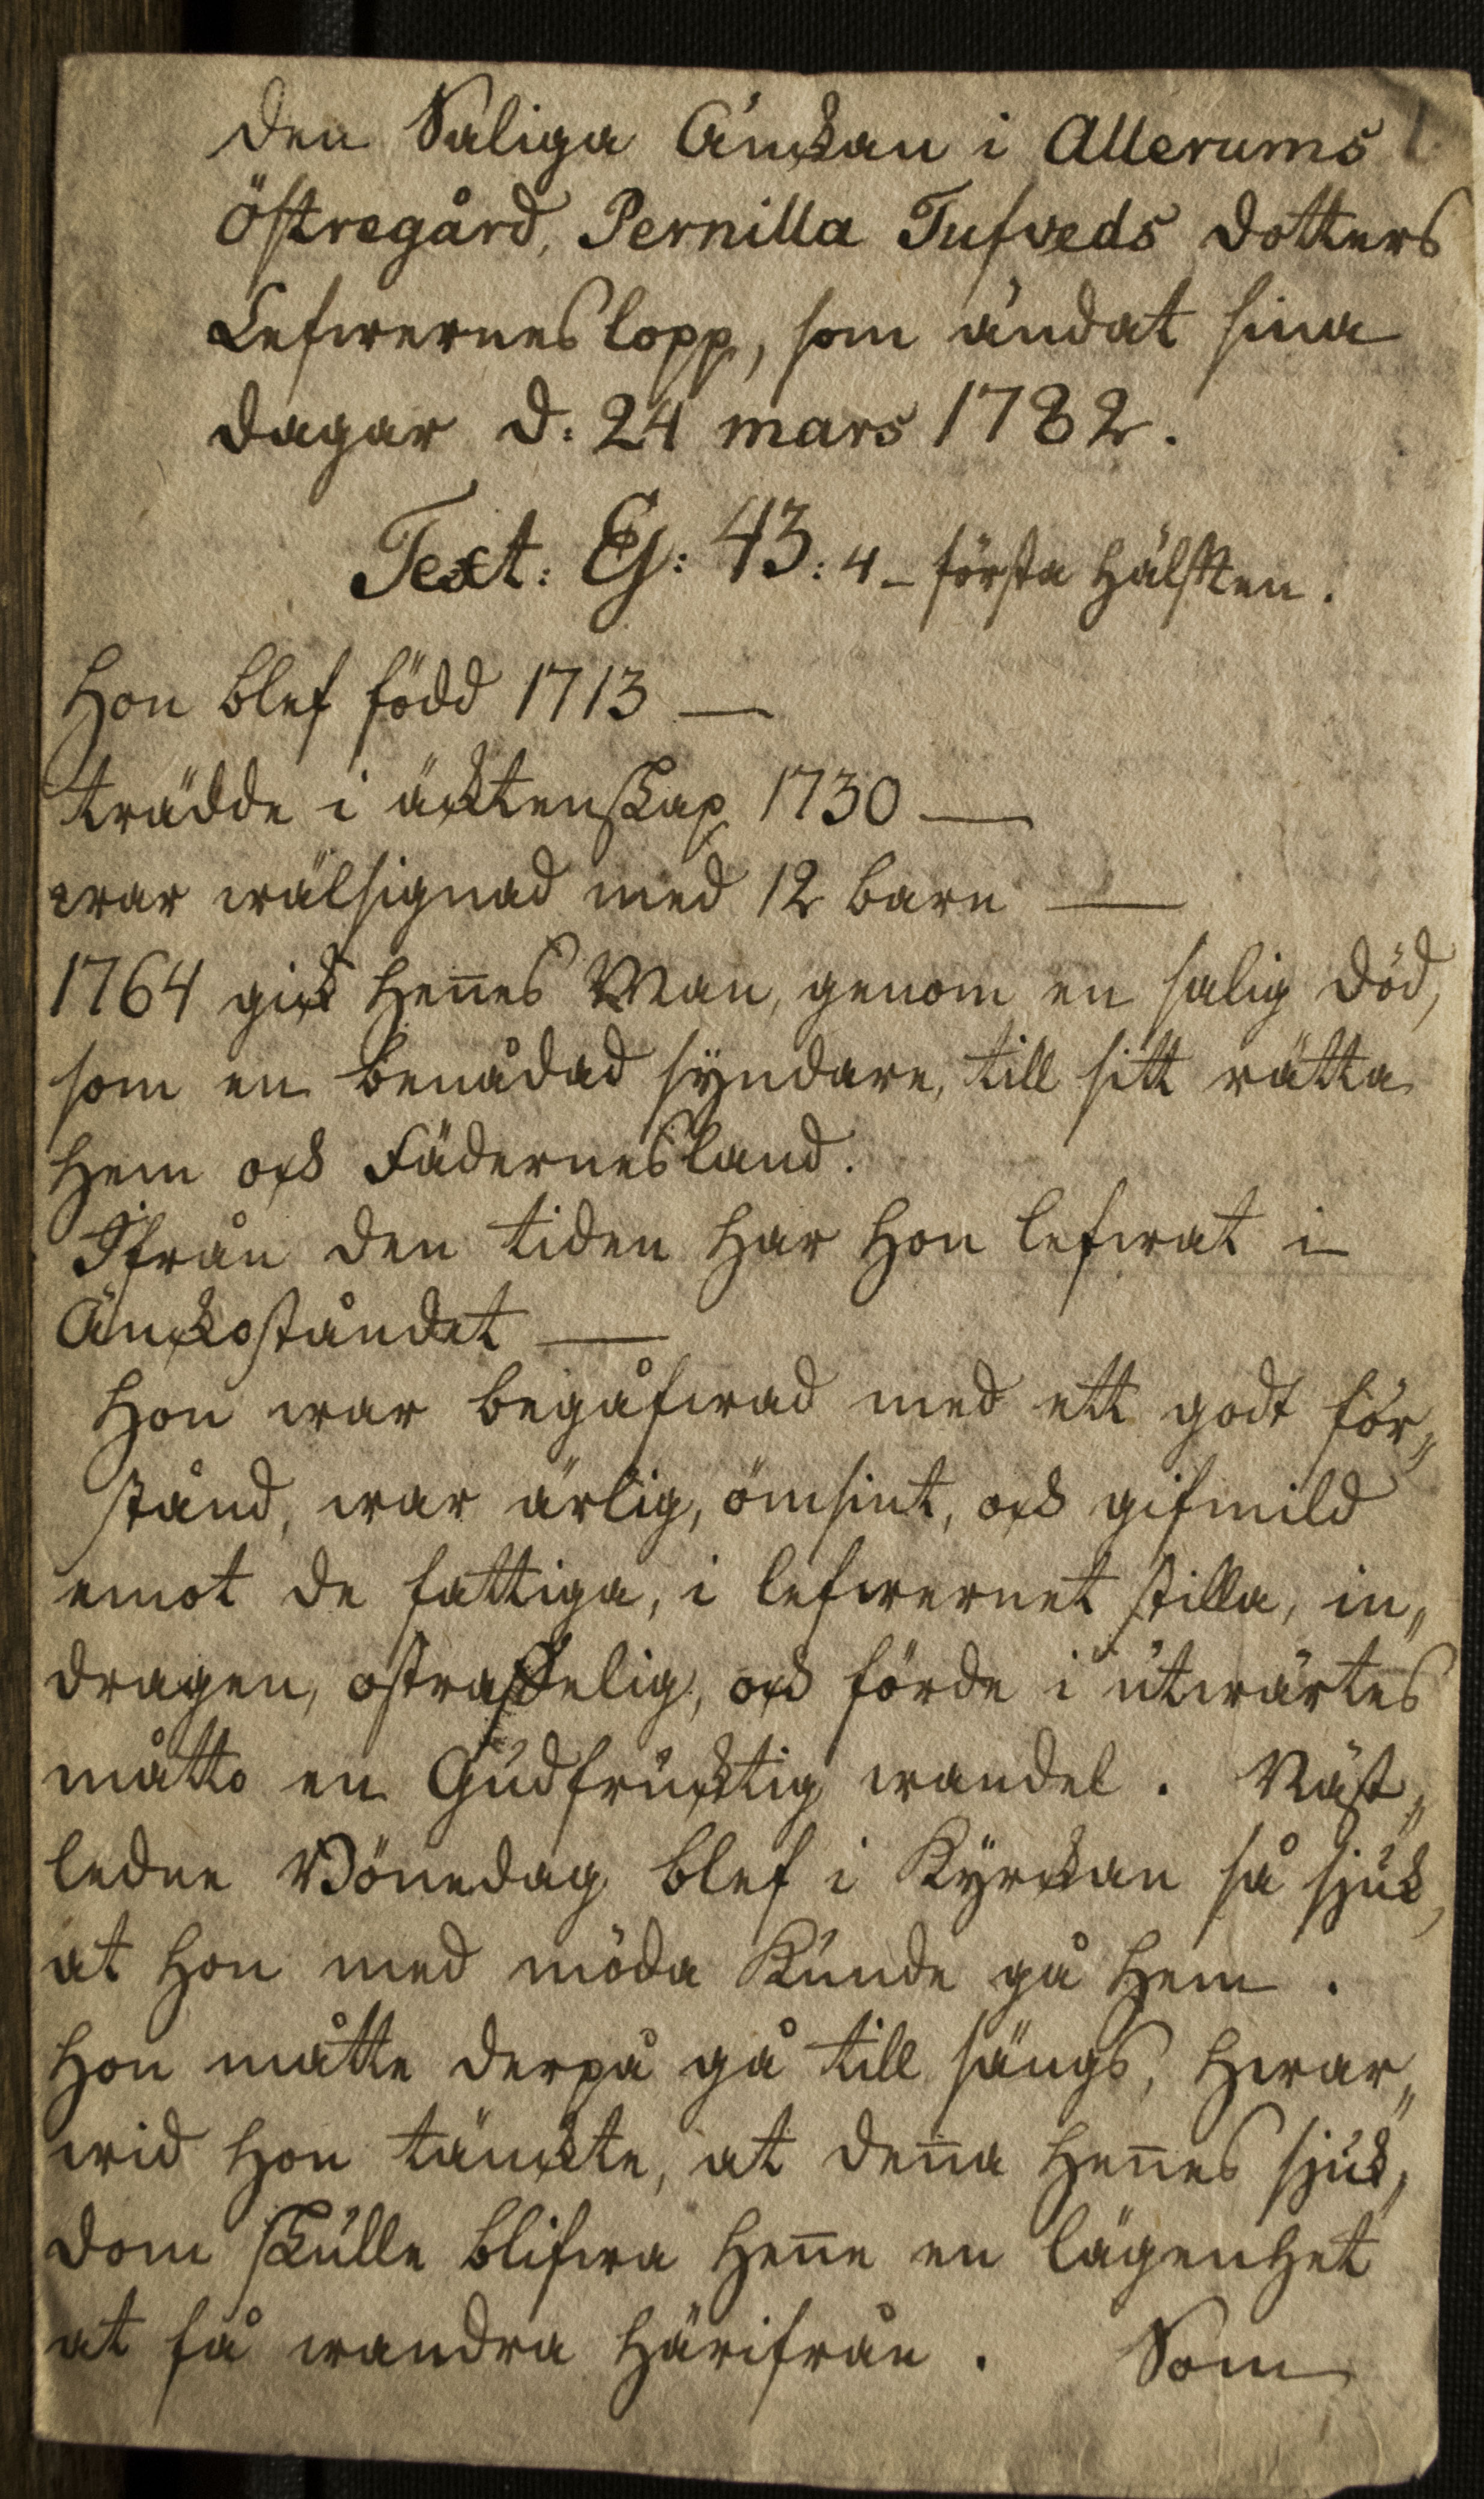 Den Saliga Änckan i Allerums
Östregård, Pernilla Tufveds Dotters
Lefwernes lopp, som ändat sina
dagar d: 24 mars 1782.
Text: Es: 43: 4 – första hälften.
Hon blef född 1713 —
trädde i äcktenskap 1730 —
war wälsignad med 12 barn —
1764 gick hen̄es Man, genom en salig död,
som en benådad syndare, till sitt rätta
hem och Fädernesland.
Ifrån den tiden har hon lefwat i
Änckoståndet —
Hon war begåfwad med ett godt för„
stånd, war ärlig, ömsint, och gifmild
emot de fattiga, i lefwernet stilla, in„
dragen, ostraffelig, och förde i utwärtes
måtto en Gudfrucktig wandel. Näst„
ledne Bönedag blef i Kyrckan så sjuk,
at hon med möda kunde gå hem.
Hon måtte derpå gå till sängs, hwar„
wid hon tänckte, at den̄a hen̄es sjuk„
dom skulle blifwa hen̄e en lägenhet
at få wandra härifrån. Som